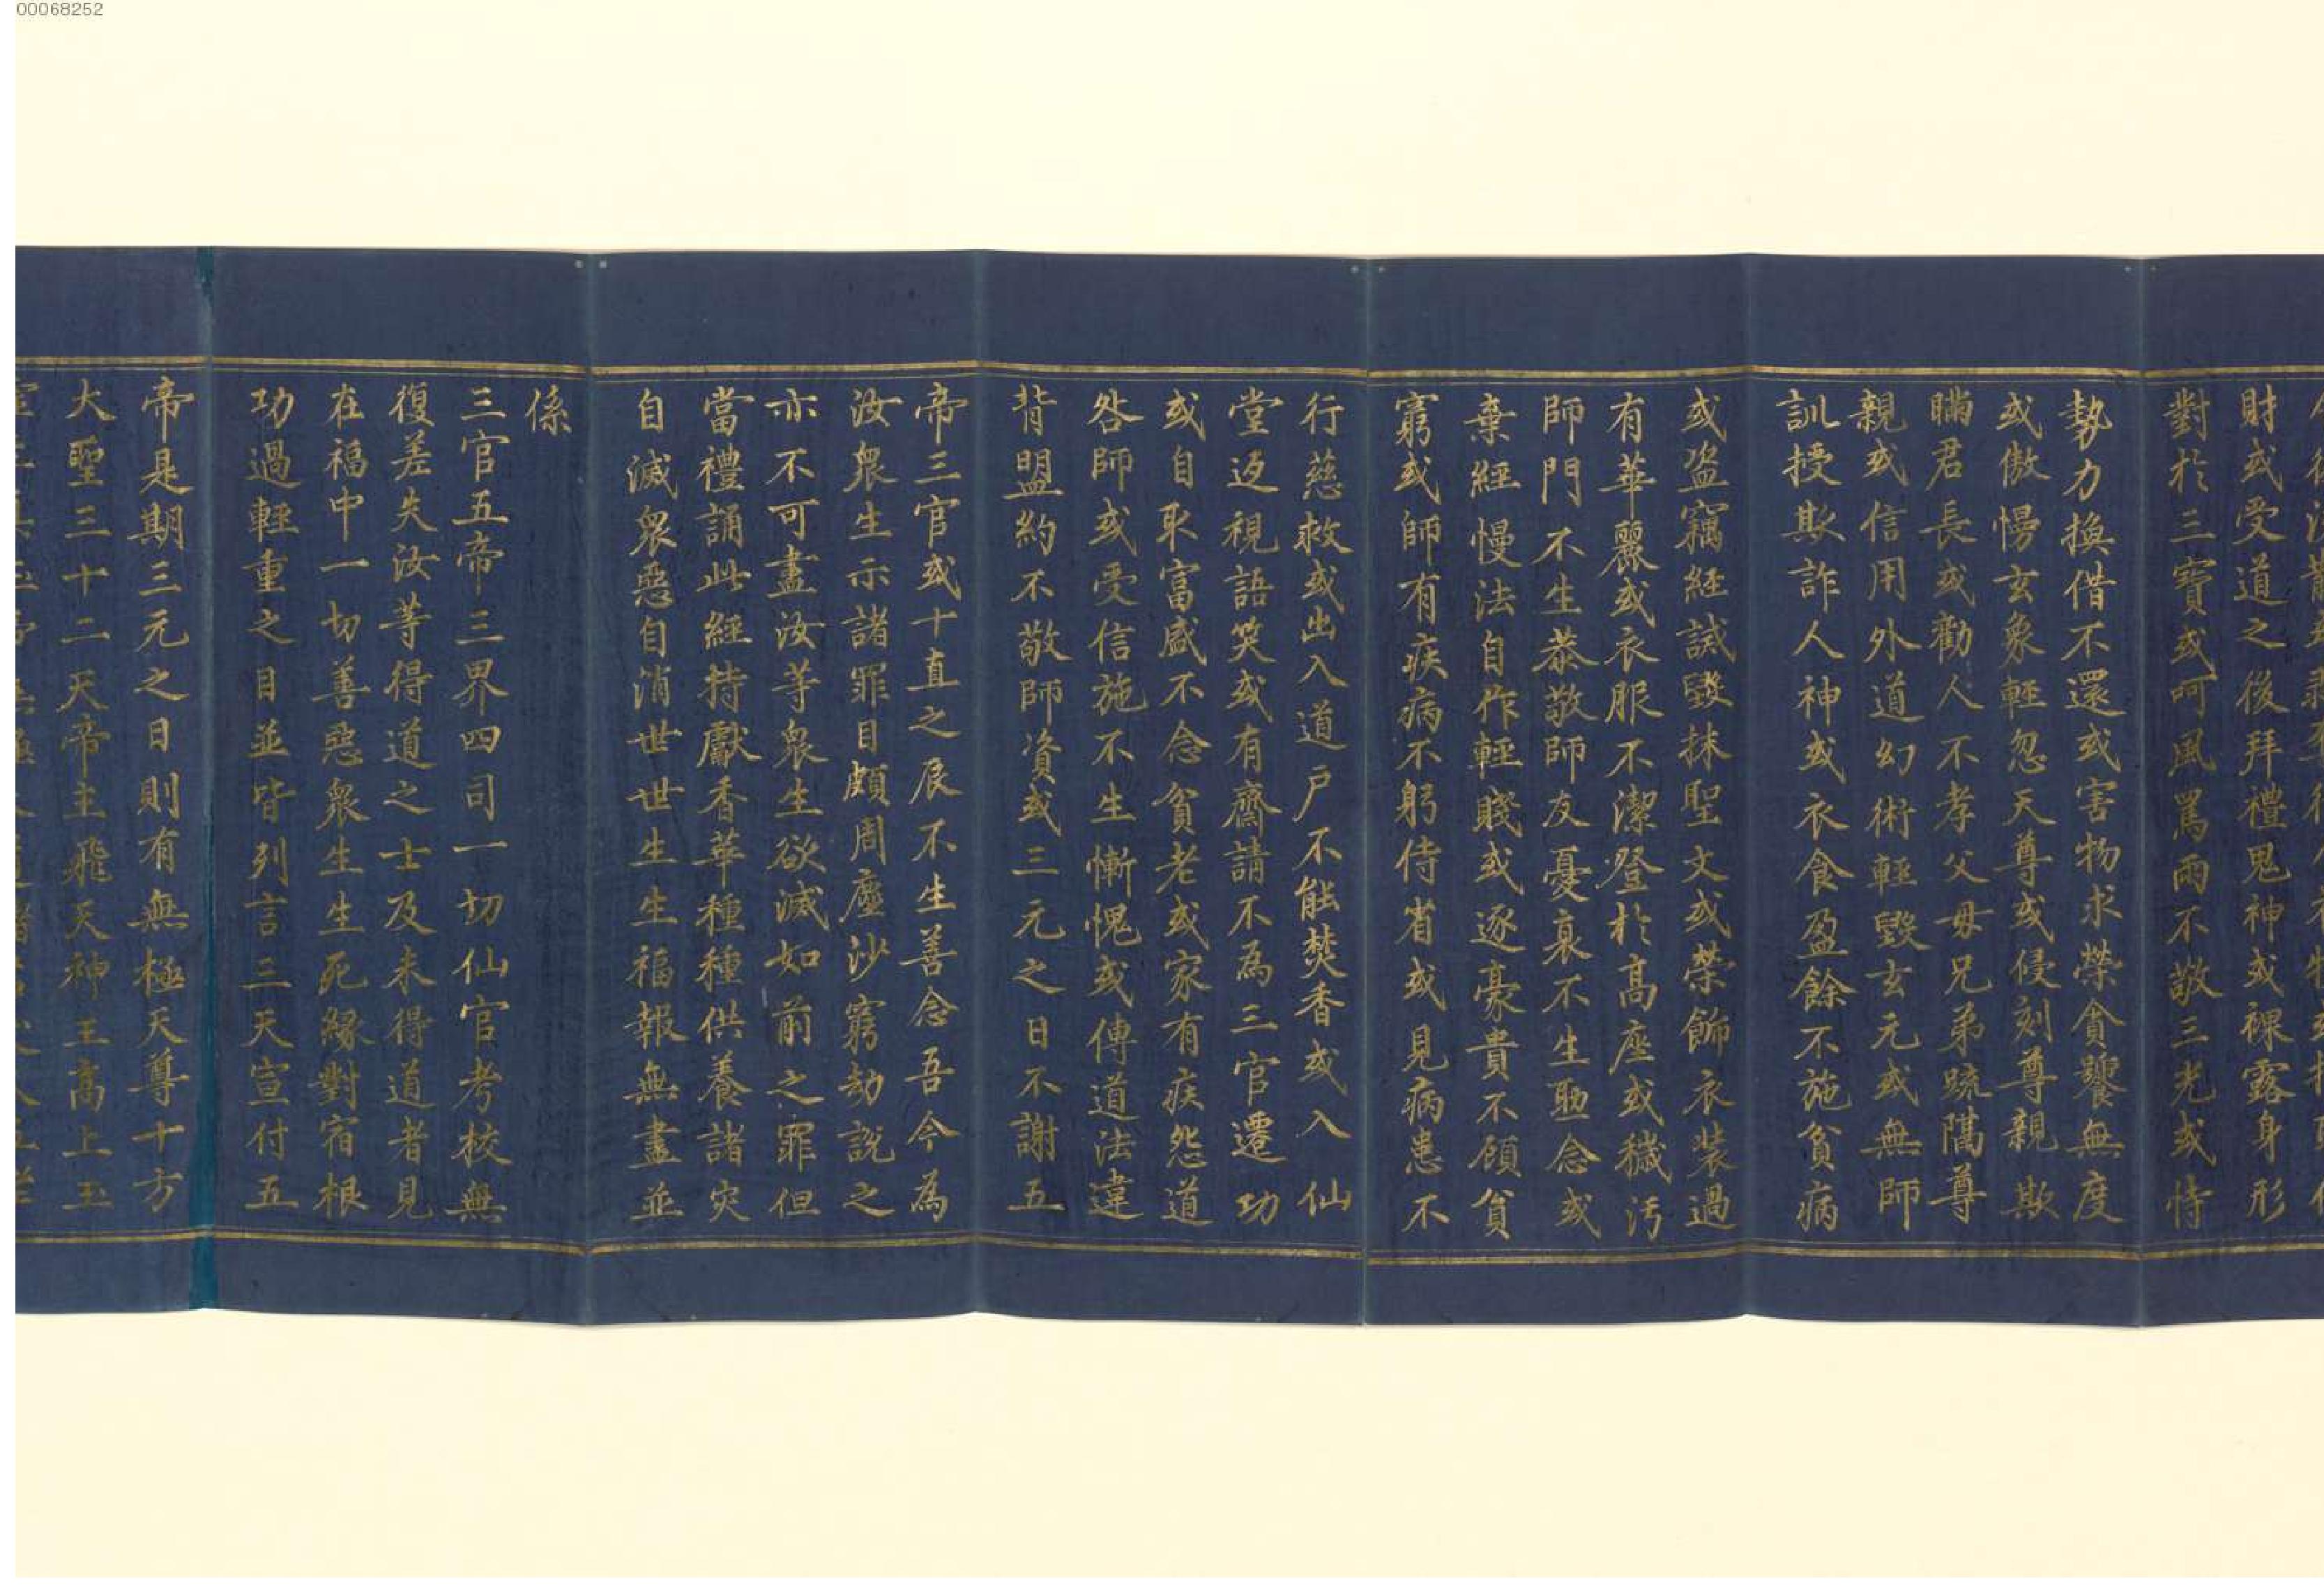 00068252
財或受道之後拜禮鬼神或裸露身形
對於三寶或呵風罵雨不敬三光或恃
勢力換借不還或害物求榮貪饕無度
或傲慢玄象輕忽天尊或侵刻尊親欺
瞞君長或勸人不孝父母兄弟䟽隔尊
親或信用外道幻術輕毀玄元或無師
訓授欺詐人神或衣食盈餘不施貧病
或盜竊經誡毀抹聖文或榮飾衣裝過
有華麗或衣服不潔登於高座或穢污
師門不生恭敬師友憂哀不生勤念或
棄經慢法自作輕賤或逐豪貴不顧貧
窮或師有疾病不躬侍省或見病患不
行慈救或出入道户不能焚香或入仙
堂返視語笑或有齋請不為三官遷功
或自取富盛不念貧老或家有疾怨道
咎師或受信施不生慚愧或傳道法違
背盟約不敬師資或三元之日不謝五
帝三官或十直之辰不生善念吾今為
汝衆生示諸罪目頗周塵沙窮劫說之
亦不可盡汝等衆生欲滅如前之罪但
當禮誦此經持獻香華種種供養諸灾
自滅衆惡自消世世生生福報無盡並
係
三官五帝三界四司一切仙官考校無
復差失汝等得道之士及未得道者見
在福中一切善惡衆生生死縁對宿根
功過輕重之目並皆列言三天宣付五
帝是期三元之日則有無極天尊十方
大聖三十二天帝主飛天神王高上玉